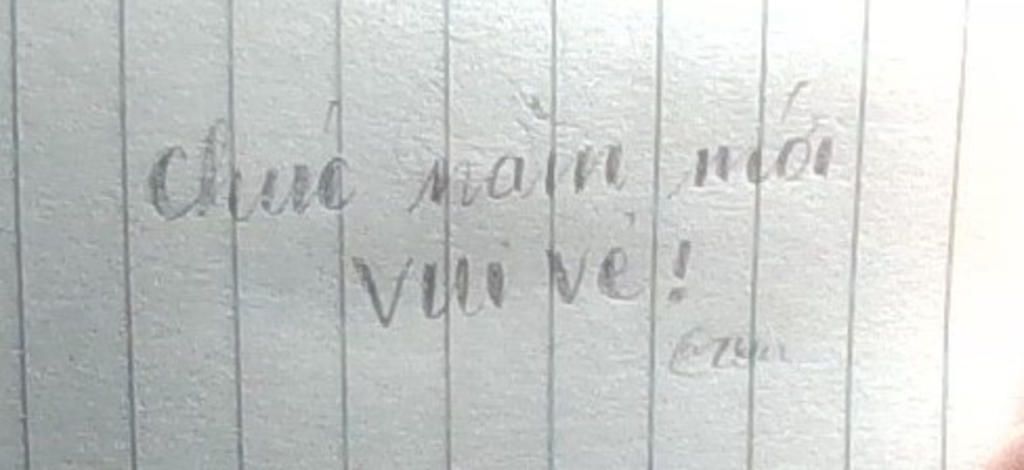 Chúc năm mới
vui vẻ!